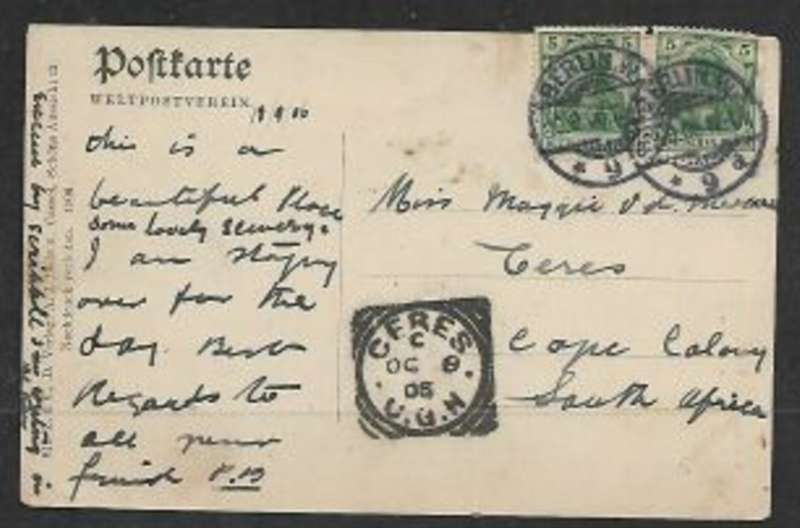 Postkarte
WELTPOSTVEREIN
this is a
beautiful place
some lovely scenery.
I am staying
over for the
day. Best
Regards to
all your
friends P.B
excuse my scribble I'm writing in
Miss Maggie v d.
Ceres
Cape Colony
South Africa
5 5
5 5
BERLIN W.
* 9
BERLIN W.
* 9 a
CERES
C
OC 8
05
C.G.H